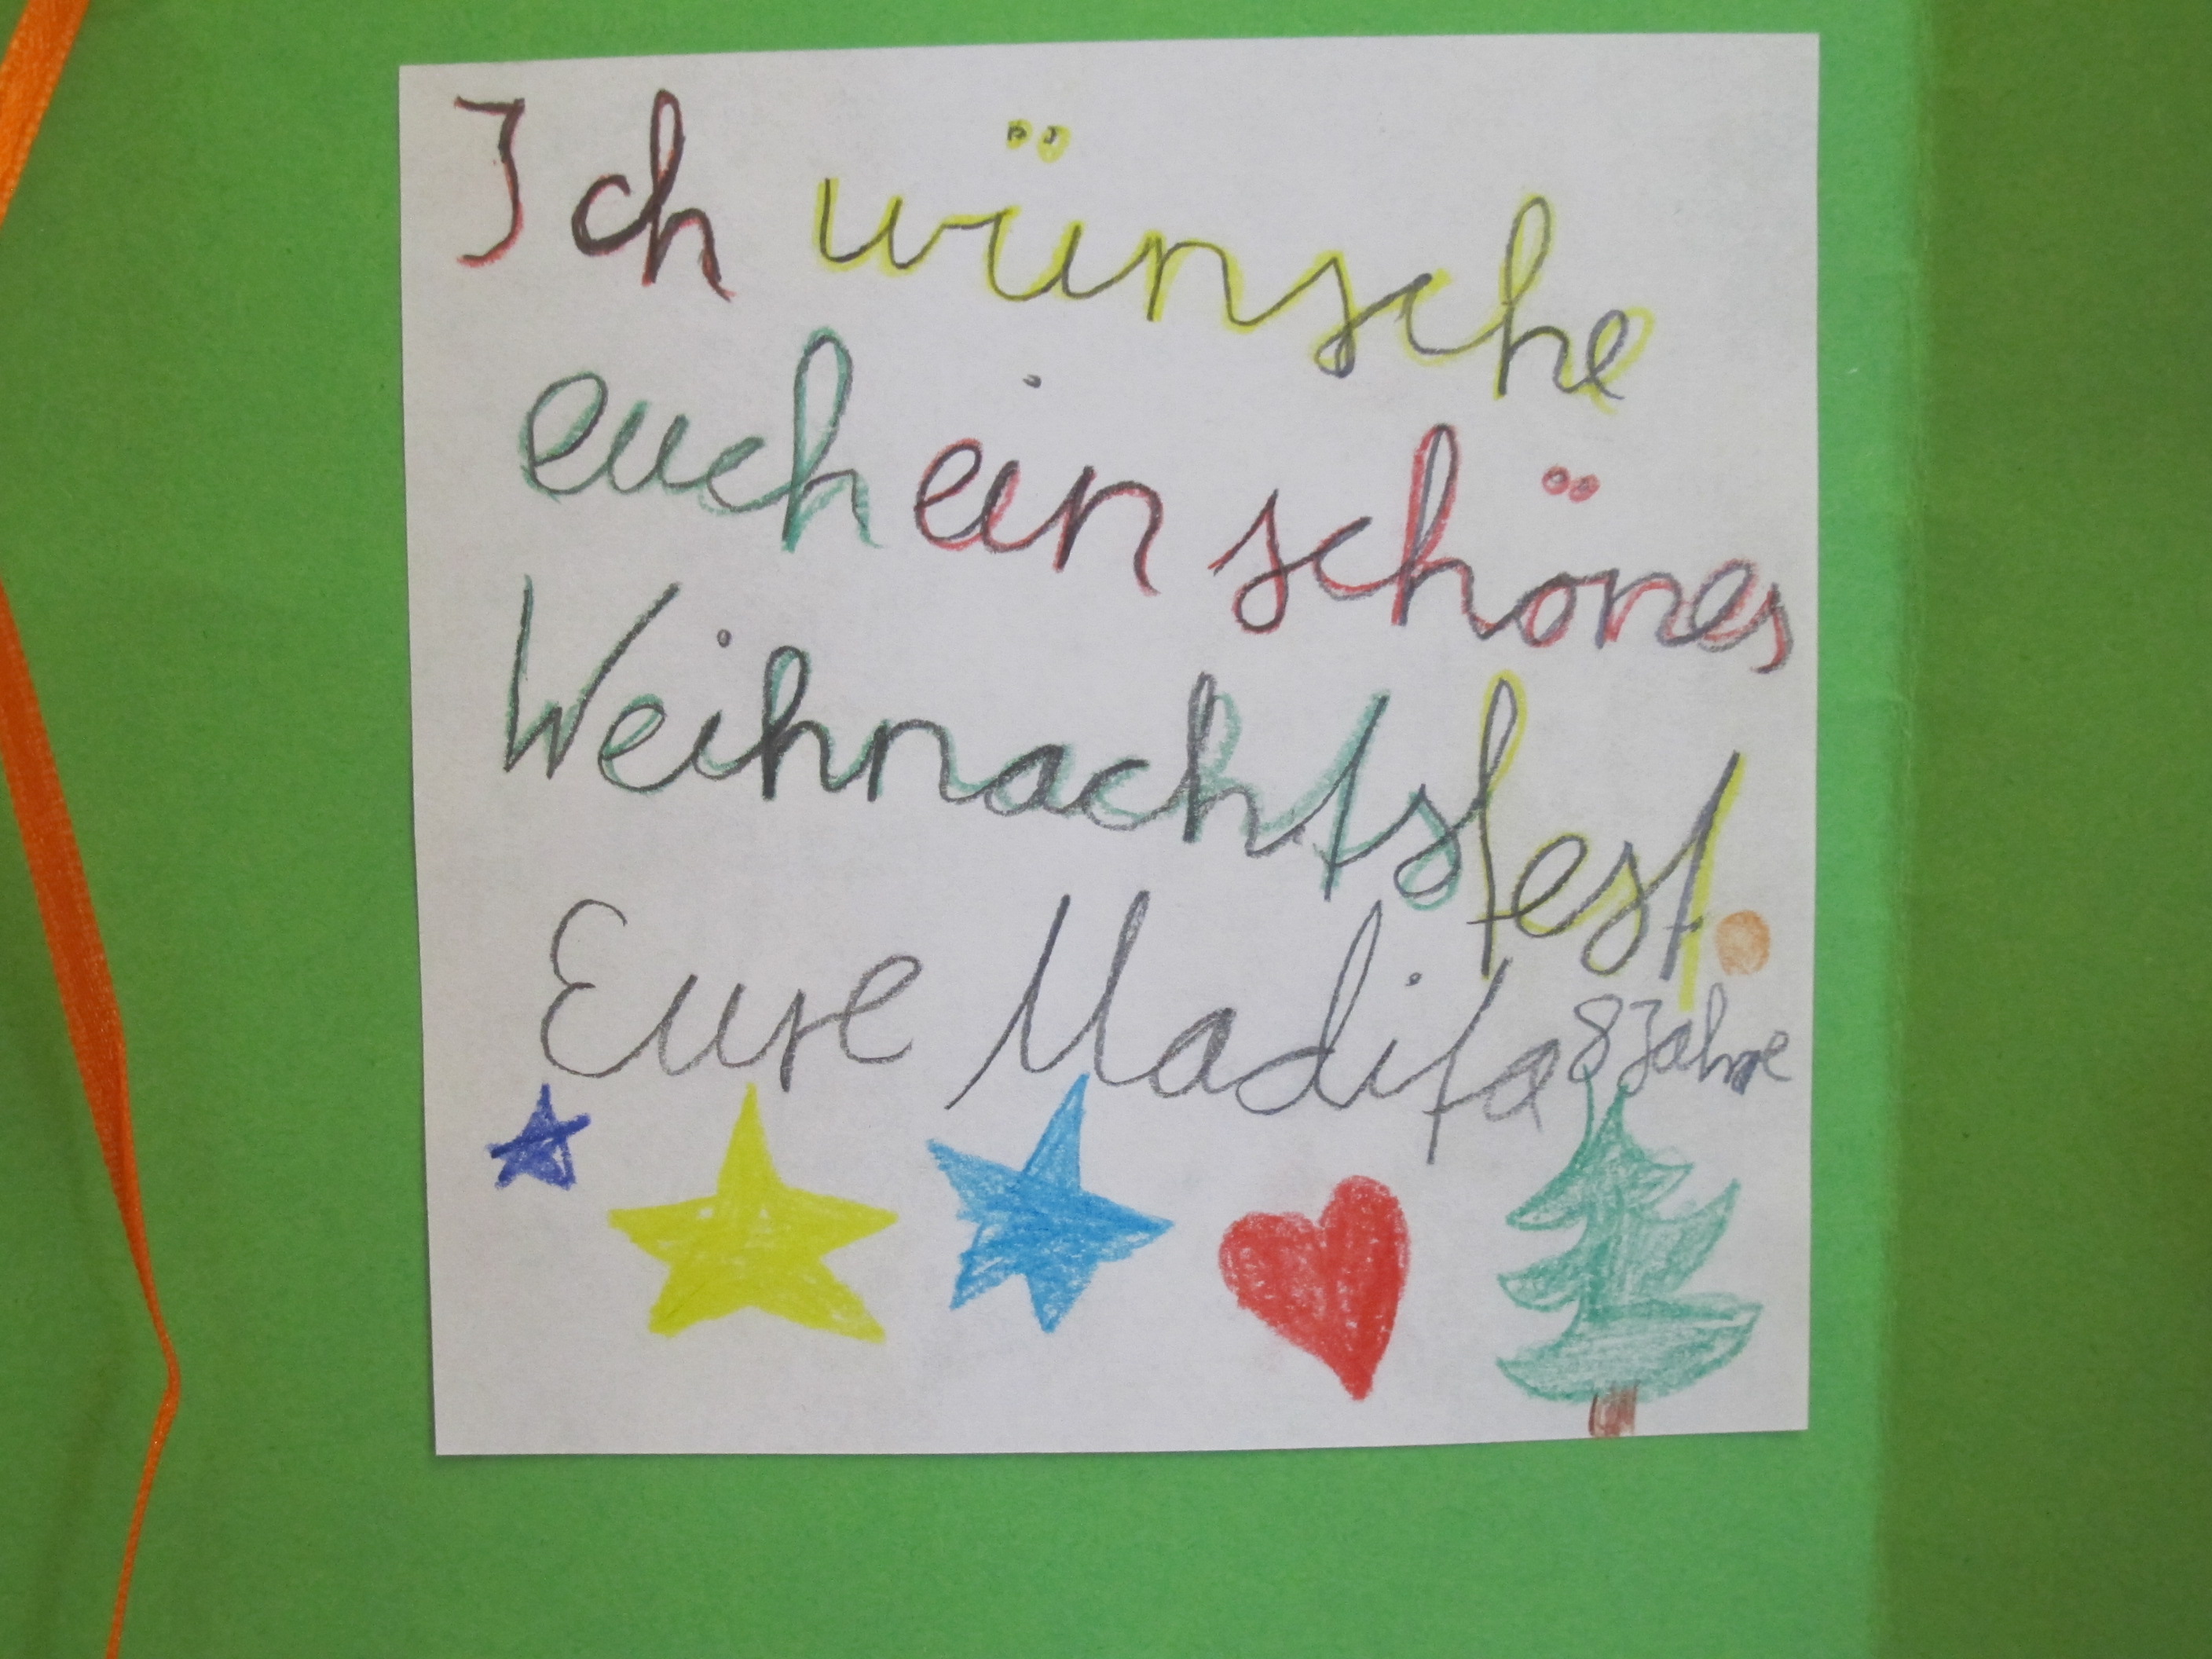 Ich wünsche
euch ein schönes
Weihnachtsfest.
Eure Madita 8 Jahre